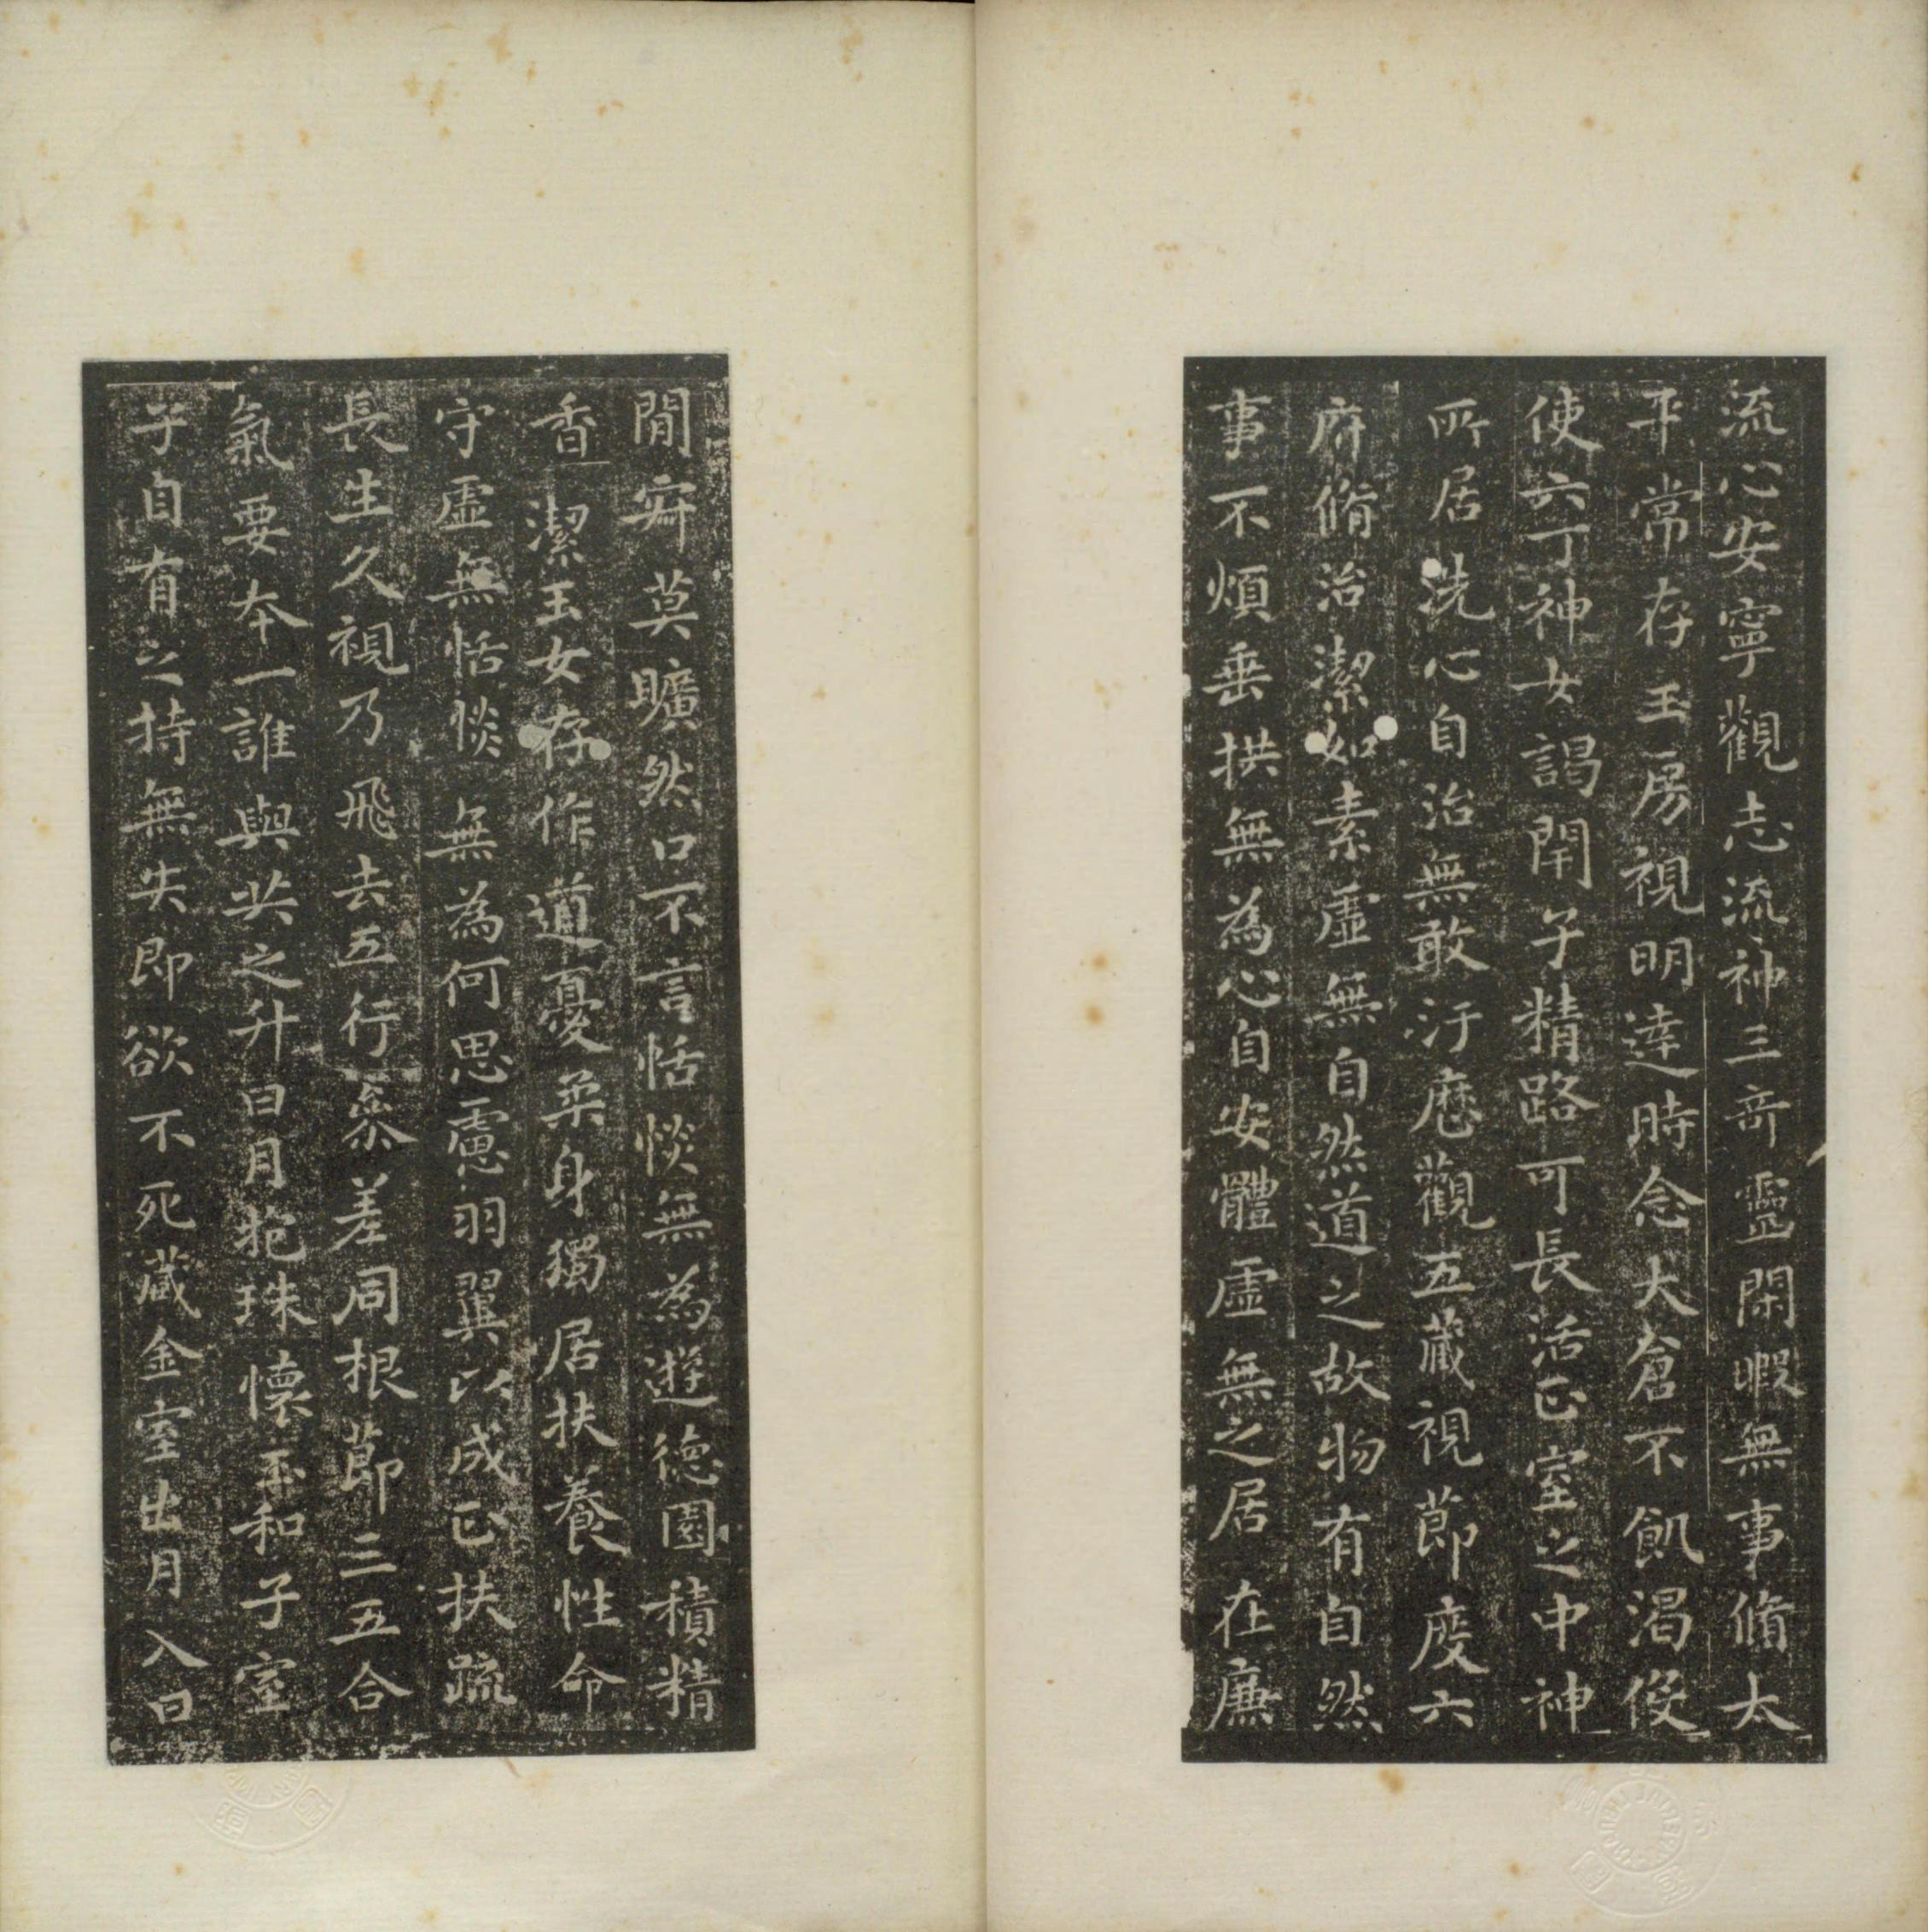 流心安寧觀志流神三奇靈閑暇無事脩太
平常存玉房視明達時念大倉不飢渴役
使六丁神女謁閇子精路可長活正室之中神
所居洗心自治無敢汙歷觀五藏視節度六
府脩治潔如素虛無自然道之故物有自然
事不煩垂拱無為心自安體虛無之居在廉
閒寂莫曠然口不言恬惔無為遊德園積精
香潔玉女存作道憂柔身獨居扶養性命
守虛無恬惔無為何思慮羽翼以成正扶疏
長生久視乃飛去五行參差同根節三五合
氣要本一誰與共之升日月抱珠懷玉和子室
子自有之持無失即欲不死藏金室出月入日